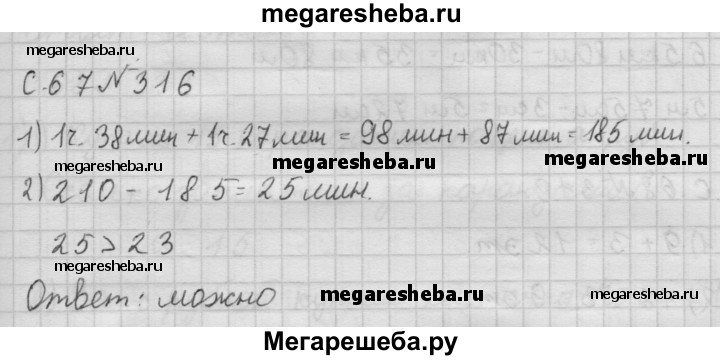 megaresheba.ru
megaresheba.ru
megaresheba.ru
С.67 N 316
megaresheba.ru
1) 1ч. 38 мин + 1ч. 27 мин = 98 мин + 87 мин = 185 мин.
megaresheba.ru
megaresheba.ru
2) 210 - 185 = 25 мин.
megaresheba.ru
25 > 23
megaresheba.ru
Ответ: можно
megaresheba.ru
megaresheba.ru
Мегарешеба.ру